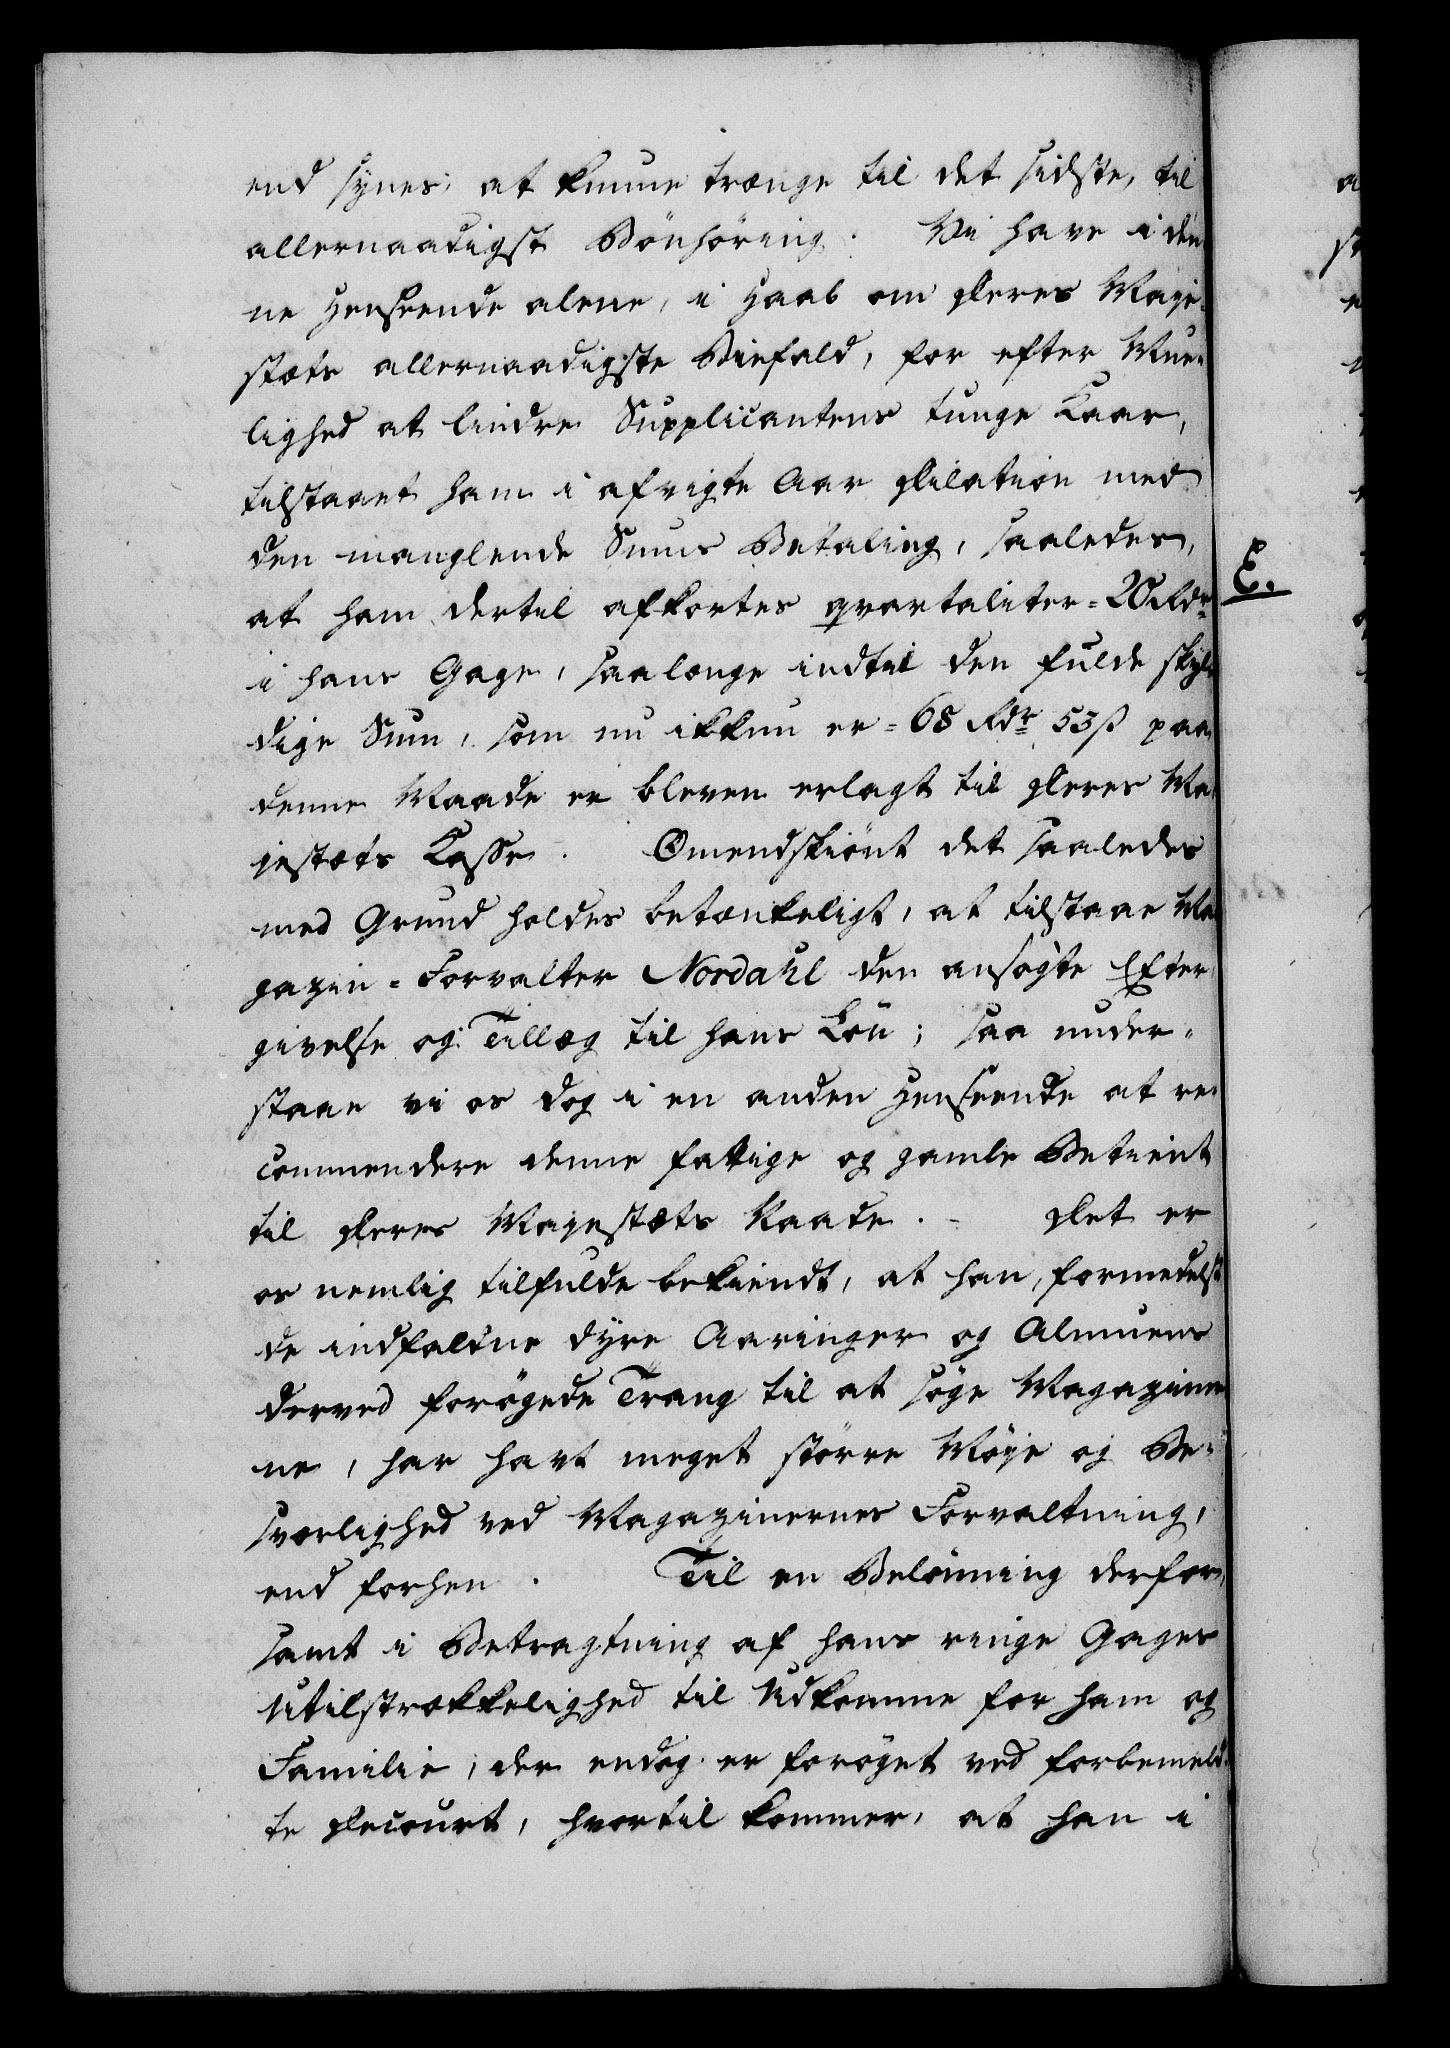 end synes, at kunne trænge til det sidste, til
allernaadigst Bönhöring. Vi have i den
ne Henseende alene, i Haab om Deres Maje-
stæts allernaadigste Biefald, for efter Mue-
lighed at lindre Supplicantens tunge Kaar,
tilstaaet ham i afvigte Aar Dilation med
den manglende Sums Betaling, saaledes,
at ham dertil afkortes qvartaliter = 20 Rdr
i hans Gage, saalænge indtil den fulde skyl-
dige Sum, som nu ikkun er = 68 Rdr 53 ß paa
denne Maade er bleven erlagt til Deres Ma-
jestæts Kasse. Omendskiönt det saaledes
med Grund holdes betænkeligt, at tilstaae Ma
gazin-Forvalter Nordahl den ansögte Efter
givelse og Tillæg til hans Lön; saa under-
staae vi os dog i en anden Henseende at re-
commendere denne fattige og gamle Betient
til Deres Majestæts Naade. - Det er
os nemlig tilfulde bekiendt, at han, formedelst
de indfaldne dyre Aaringer og Almuens
derved forögede Trang til at söge Magaziner
ne, har havt meget större Möje og Be-
sværlighed ved Magazinernes Forvaltning,
end forhen. Til en Belönning derfor,
samt i Betragtning af hans ringe Gages
Utilstrækkelighed til Udkomme for ham og
Familie, der endog er foröget ved forbemeld-
te Decourt, hvortil kommer, at han i
E.